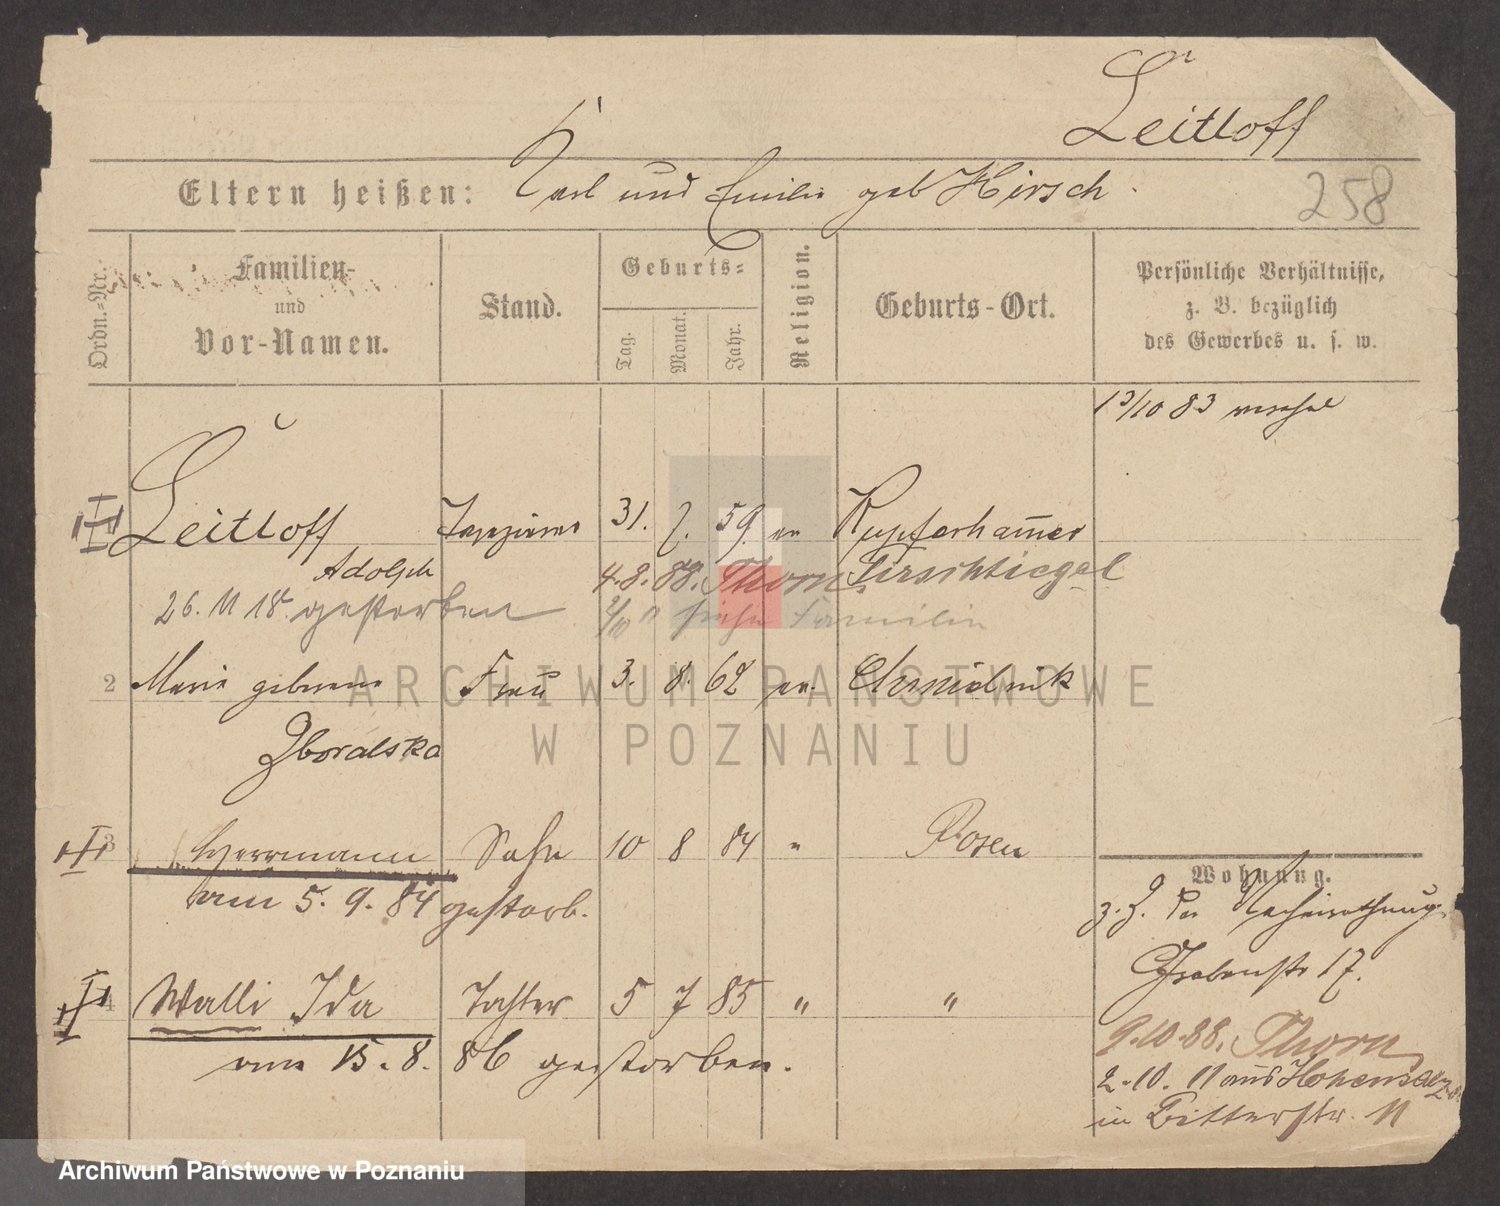 Leitloff
Eltern heißen: Karl und Emilie geb Hirsch.
258
Ordn.-Nr.
Familien-
und
Vor-Namen.
Stand.
Geburts-
Tag.
Monat.
Jahr.
Religion.
Geburts-Ort.
Persönliche Verhältnisse,
z. B. bezüglich
des Gewerbes u. s. w.
13/10 83
Leitloff Tapezierer 31. 7. 59. ev Kupferhammer
Adolph 4.8.88. Thorn. Tirschtiegel
26. 11 18. gestorben 2/10 11 Familie
2 Marie geborene Frau 3. 8. 62 ev.
Zboralska
3 Herrmann Sohn 10 8 84 " Posen
am 5. 9. 84 gestorb.
Wohnung.
z. Z.
Grabenstr 17.
4 Walli Ida Tochter 5 7 85 " "
am 15. 8. 86 gestorben.
9.10.88. Thorn
2.10. 11 aus Hohensalza
in Ritterstr. 11
ARCHIWUM PAŃSTWOWE
W POZNANIU
Archiwum Państwowe w Poznaniu